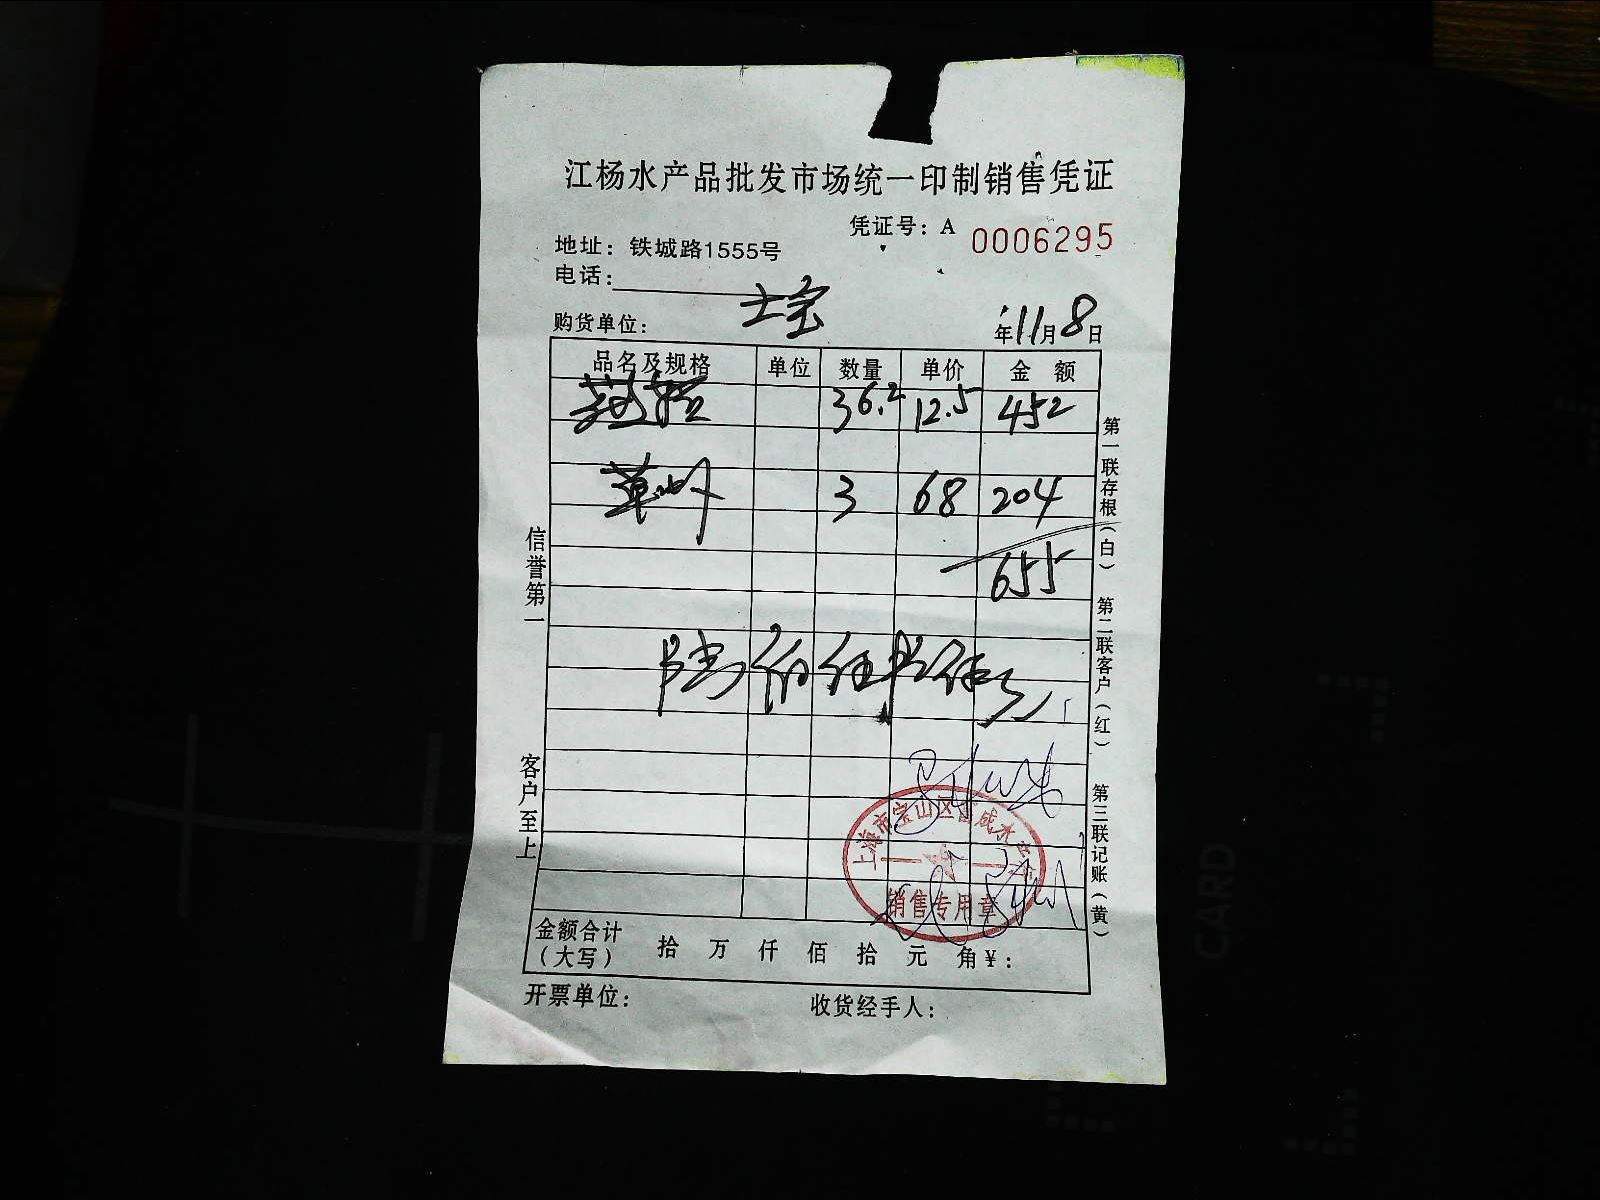 江杨水产品批发市场统一印制销售凭证
凭证号：A 0006295
地址：铁城路1555号
电话：
购货单位：士宝
年11月8日
品名及规格 单位 数量 单价 金 额
36.2 12.5 452
草虾 3 68 204
655
陆佰伍拾伍元
金额合计（大写） 拾 万 仟 佰 拾 元 角 ¥：
开票单位： 收货经手人：
信誉第一
客户至上
第一联存根（白） 第二联客户（红） 第三联记账（黄）
上海市宝山区 成水
销售专用章